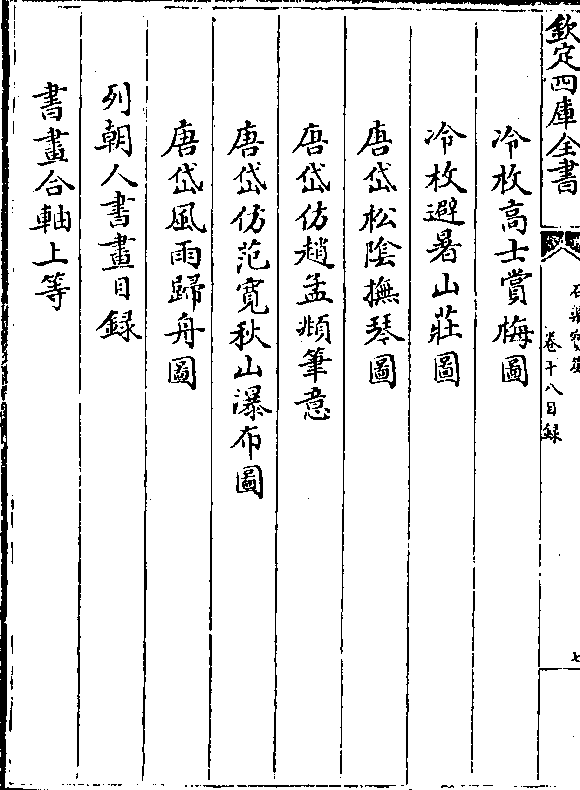 欽定四庫全書
卷十八目録
七
冷枚高士賞梅圖
冷枚避暑山莊圖
唐岱松陰撫琴圖
唐岱仿趙孟頫筆意
唐岱仿范寛秋山瀑布圖
唐岱風雨歸舟圖
列朝人書畫目録
書畫合軸上等